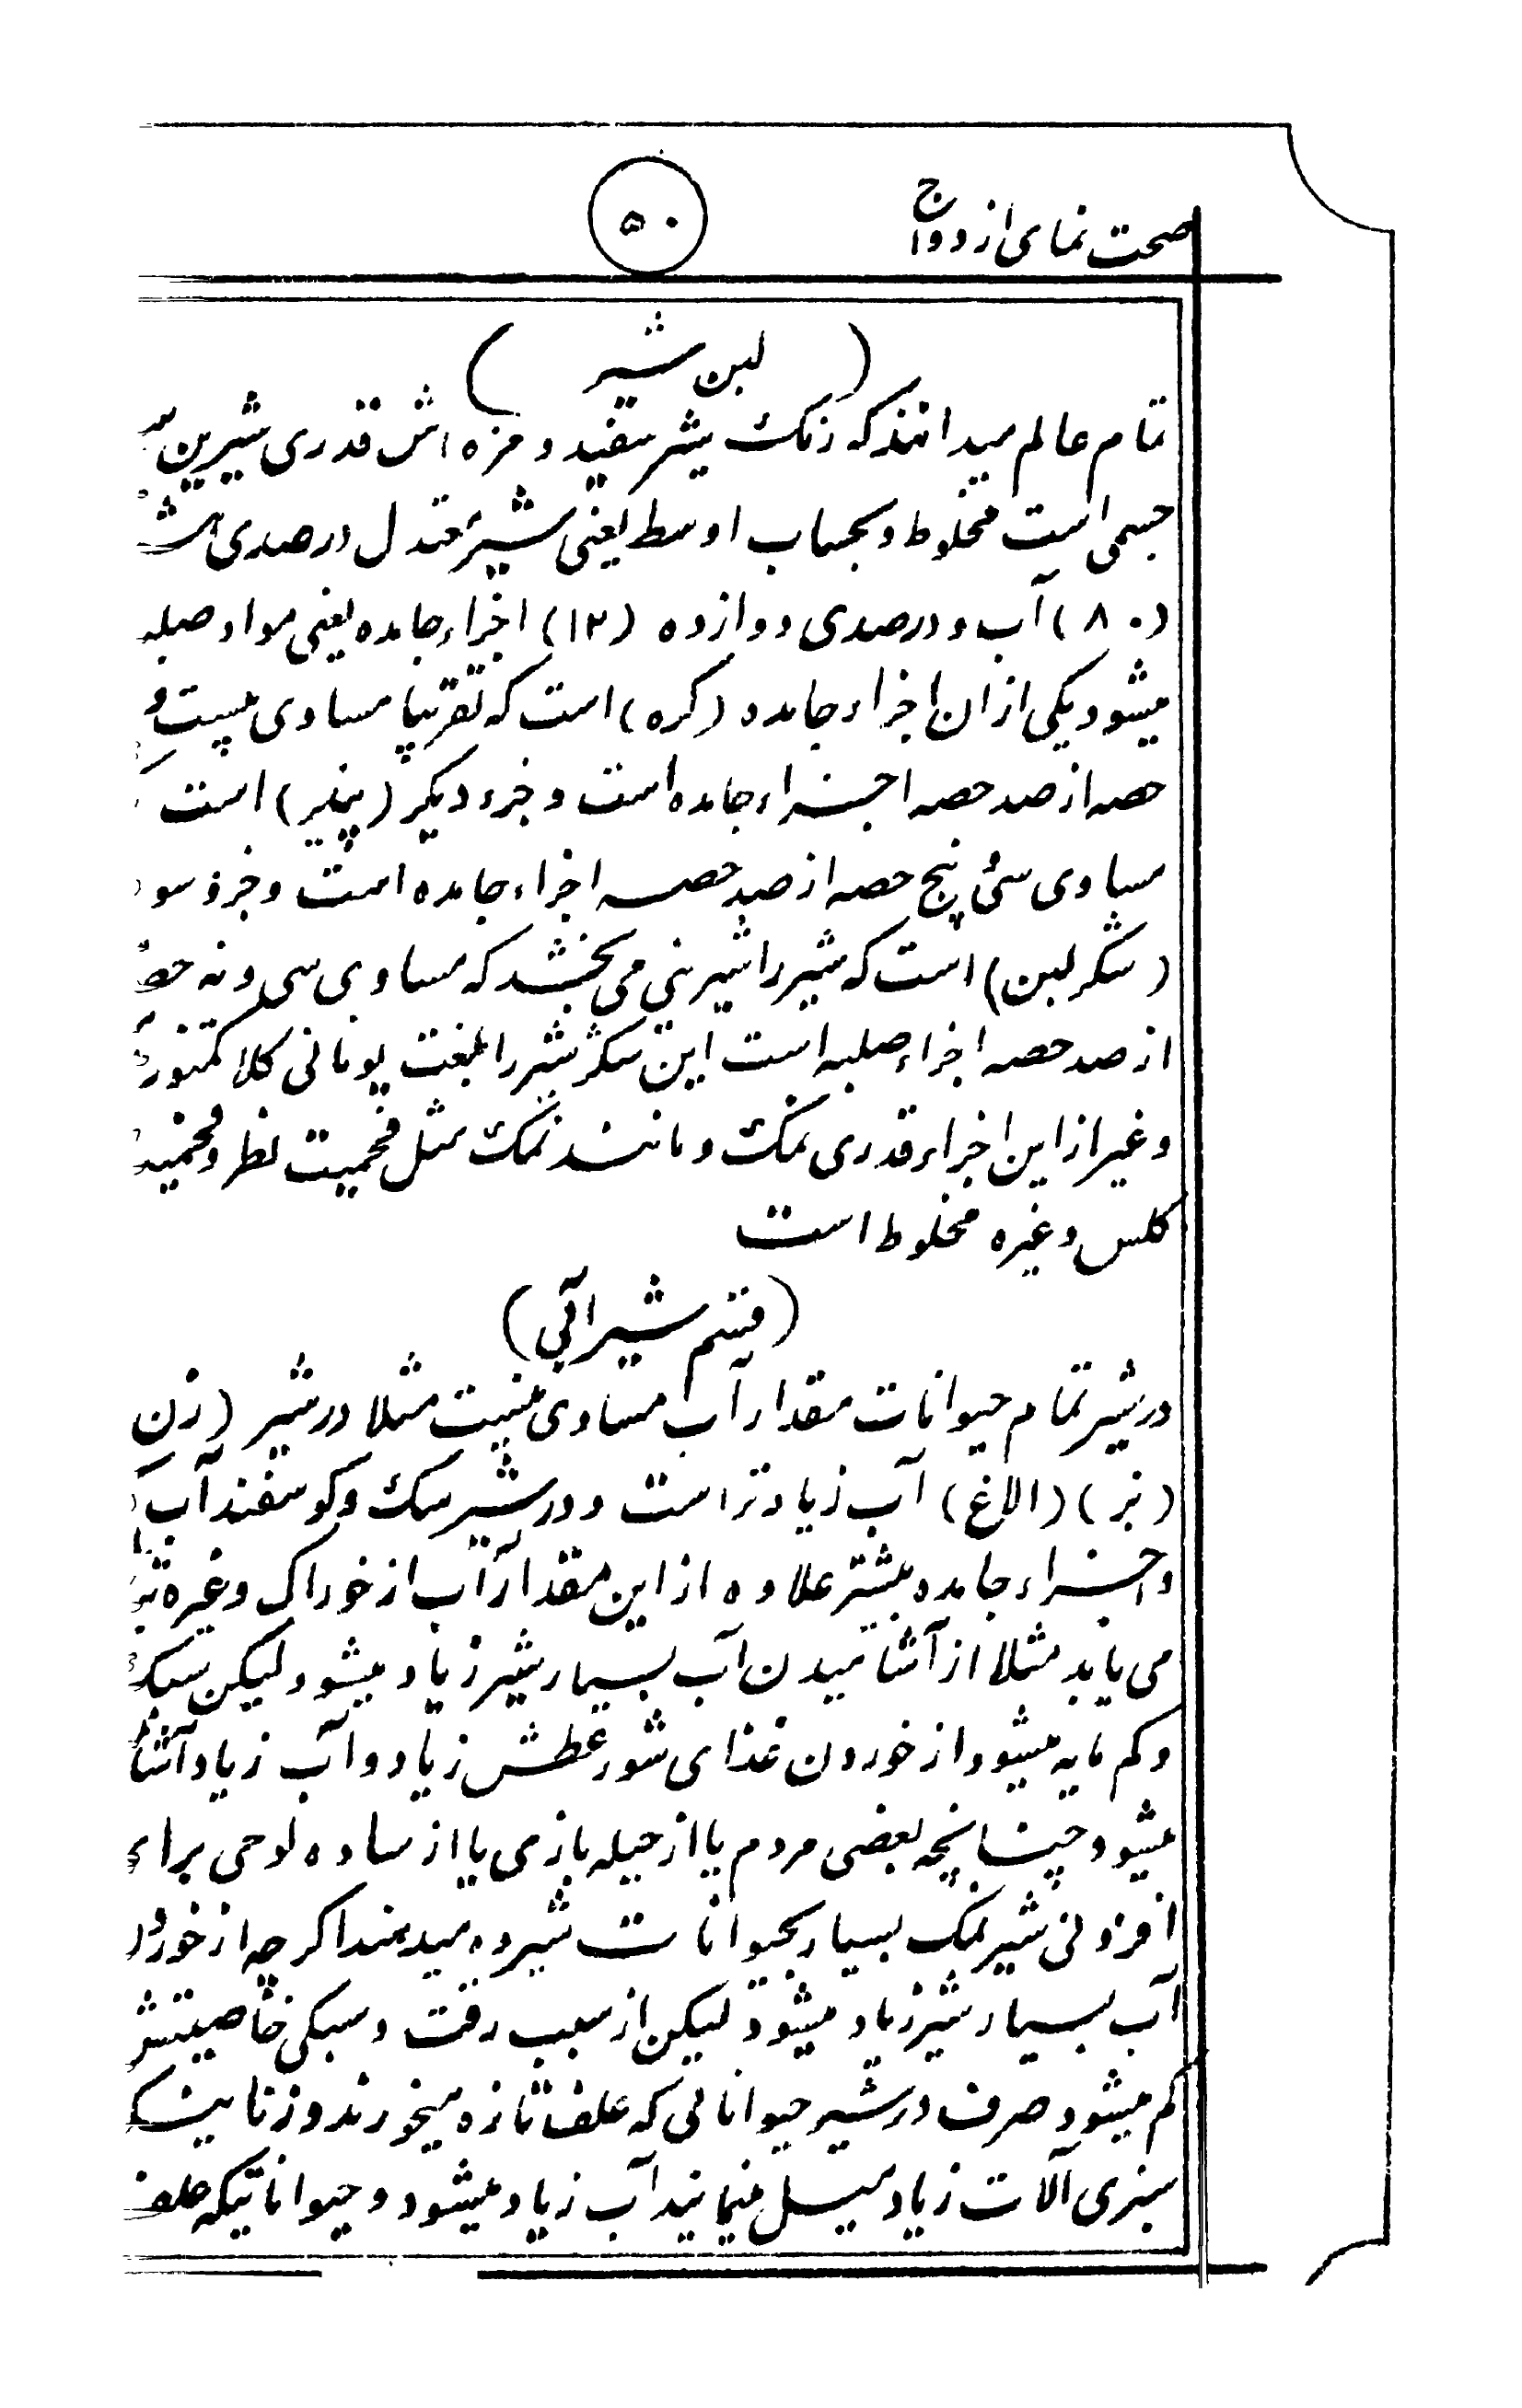 صحت نمای ازدواج
۵۰
(لبن شیر)
تمام عالم میدانند که رنگ شیر سفید و مزه اش قدری شیرین
جسمی است مخلوط و بحساب اوسط یعنی شیر معتدل درصدی
(۸۰) آب و درصدی دوازده (۱۲) اجزاء جامده یعنی مواد صلبه
میشود یکی ازان اجزاء جامده (کره) است که تقریبا مساوی بیست و
حصه از صد حصه اجزاء جامده است و جزء دیگر (پنیر) است
مساوی سی پنج حصه از صد حصه اجزاء جامده است و جزو سو
(شکر لبن) است که شیر را شیرینی می بخشد که مساوی سی و نه
از صد حصه اجزاء صلبه است این شکر شیر را بلغت یونانی
و غیر از این اجزاء قدری نمک و مانند نمک مثل
کلس و غیره مخلوط است
(قسم شیر آبی)
در شیر تمام حیوانات مقدار آب مساوی نیست مثلا در شیر (زن
(بز) (الاغ) آب زیادتر است و در شیر سگ و گوسفند آب
و اجزاء جامده بیشتر علاوه از این مقدار آب از خوراک و غیره
می یابد مثلا از آشامیدن آب بسیار شیر زیاد میشود لیکن سبک
و کم مایه میشود از خوردن غذای شور عطش زیاد و آب زیاد
میشود چنانچه بعضی مردم یا از حیله بازی یا از ساده لوحی برای
افزونی شیر نمک بسیار بحیوانات شیرده میدهند اگرچه از
آب بسیار شیر زیاد میشود لیکن از سبب رقت و سبکی خاصیتش
کم میشود صرف در شیر حیواناتی که علف تازه میخورند و زنانیکه
سبزی آلات زیاد میل مینمایند آب زیاد میشود و حیواناتیکه علف